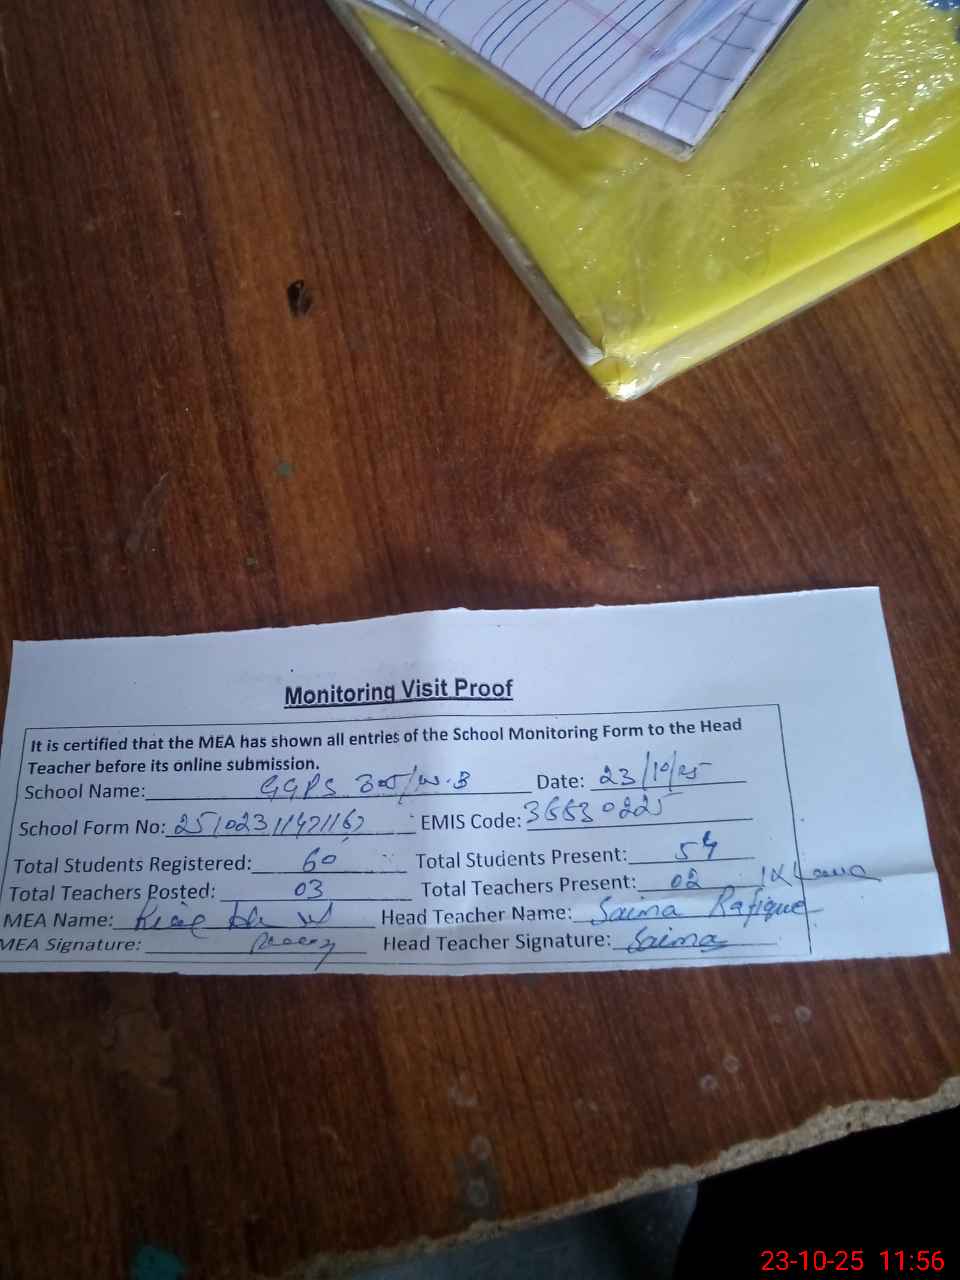 Monitoring Visit Proof
It is certified that the MEA has shown all entries of the School Monitoring Form to the Head
Teacher before its online submission.
School Name: GGPS 305/W.B Date: 23/10/25
School Form No: EMIS Code: 36630225
Total Students Registered: 60 Total Students Present: 54
Total Teachers Posted: 03 Total Teachers Present: 02 1X Leave
MEA Name: Head Teacher Name: Saima Rafique
MEA Signature: Head Teacher Signature: Saima
23-10-25 11:56